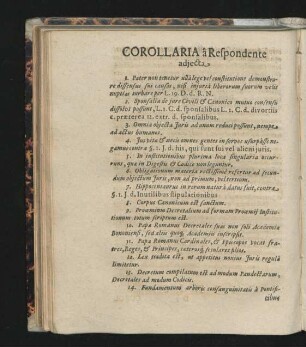 COROLLARIA â Respondente
adjecta.
1. Pater non tenetur ulla lege vel constitutione demonstra-
re dissensus sui causas, nisi injuriâ liberorum suorum velit
nuptias turbare per L. 19. D. d. R. N.
2. Sponsalia de jure Civili & Canonico mutuo consensu
dissolvi possunt, L. 1. C. d. sponsalibus L. 2. C. d. divortiis
c. præterea 2. extr. d. sponsalibus.
3. Omnia objecta Juris ad unum reduci possunt, nempe ad
actus humanos.
4. Ju gentis in servos usurpasse ne-
gamus contra §. 1. J. d. his, qui sunt sui vel alieni juris.
5. In institutionibus plurima loca singularia occur-
runt, quæ in Digestis & Codice non leguntur.
6. Obligationum materia rectissimè refertur ad secun-
dum objectum juris, non ad primum, vel tertium.
7. Hippocentauros in rerum natura dari, contra
§. 1. J. d. Inutilibus stipulationibus
8. Corpus Canonicum est sanctum.
9. Proœmium Decretalium ad formam Proœmii Institu-
tionum totum scriptum est.
10. Papa Romanus Decretales suas non soli Academiæ
Bononiensi, sed aliis quoq; Academiis inscripsit.
11. Papa Romanus Cardinales, & Episcopos vocat fra-
tres, Reges, & Principes, ceterosq; fideles filios.
12. Lex tradita est, ut appetitus noxius Juris regulâ
limitetur.
13. Decretum compilatum est ad modum Pandectarum,
Decretales ad modum Codicis.
14. Fundamentum arboris consanguinitatis à Pontifi-
cibus